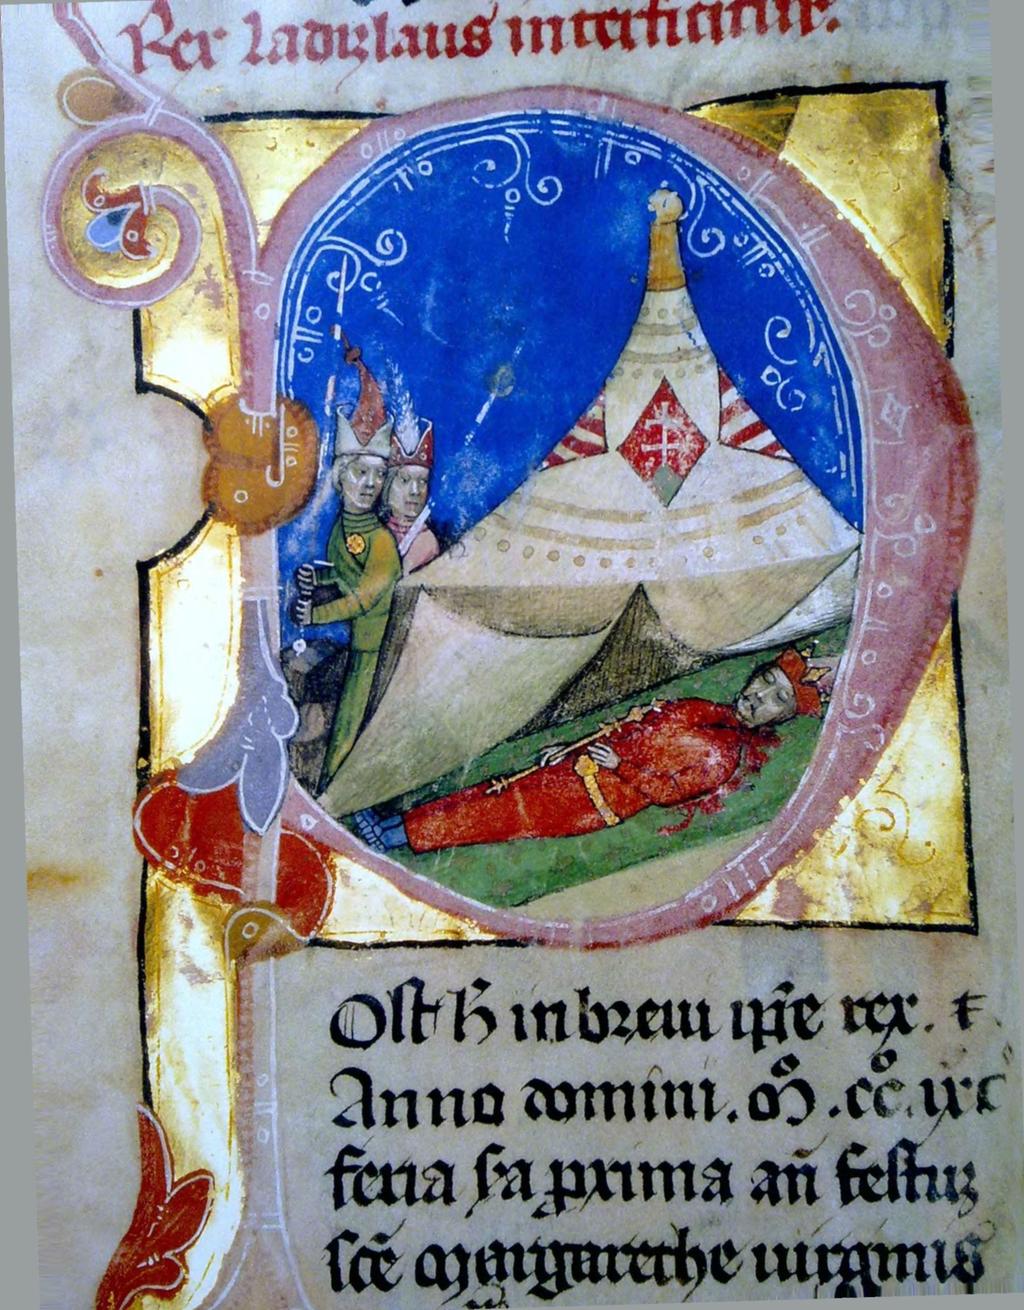 Rex ladizlaus interficitur.
Post h̄ in breui ip̄e rex. ⁊
Anno domini. M̊. cc̊.
feria s̄a ꝓxima an̄ festuꝫ
sc̄e Margarethe uirginis